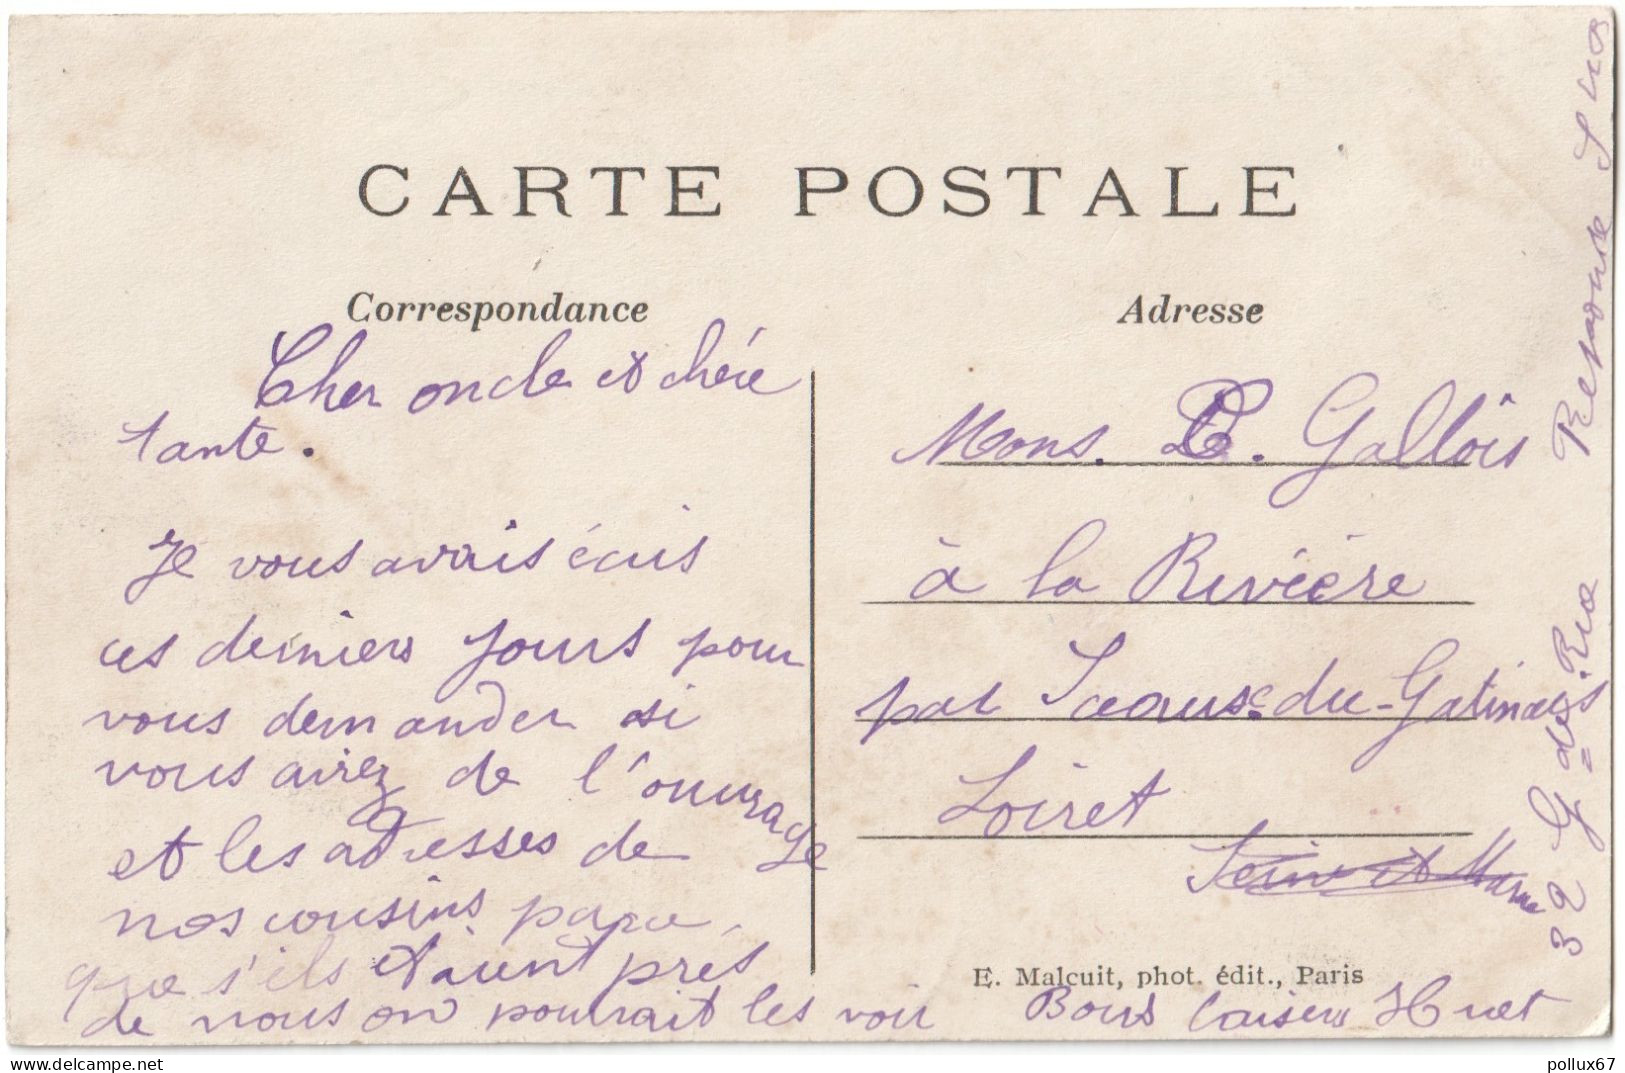 CARTE POSTALE
Correspondance
Adresse
Cher oncle et chére
tante.
Je vous avais écris
ces derniers jours pour
vous demander si
vous airez de l'ouvrage
et les adresses de
nos cousins parce
que s'ils étaient pres
de nous on pourrait les voir
Bons baisers Huet
Mons. P. Gallois
à la Rivière
par Sceaux-du-Gatinais
Loiret
Seine et Marne
E. Malcuit, phot. édit., Paris
32 G des Rue
Reponse
pollux67